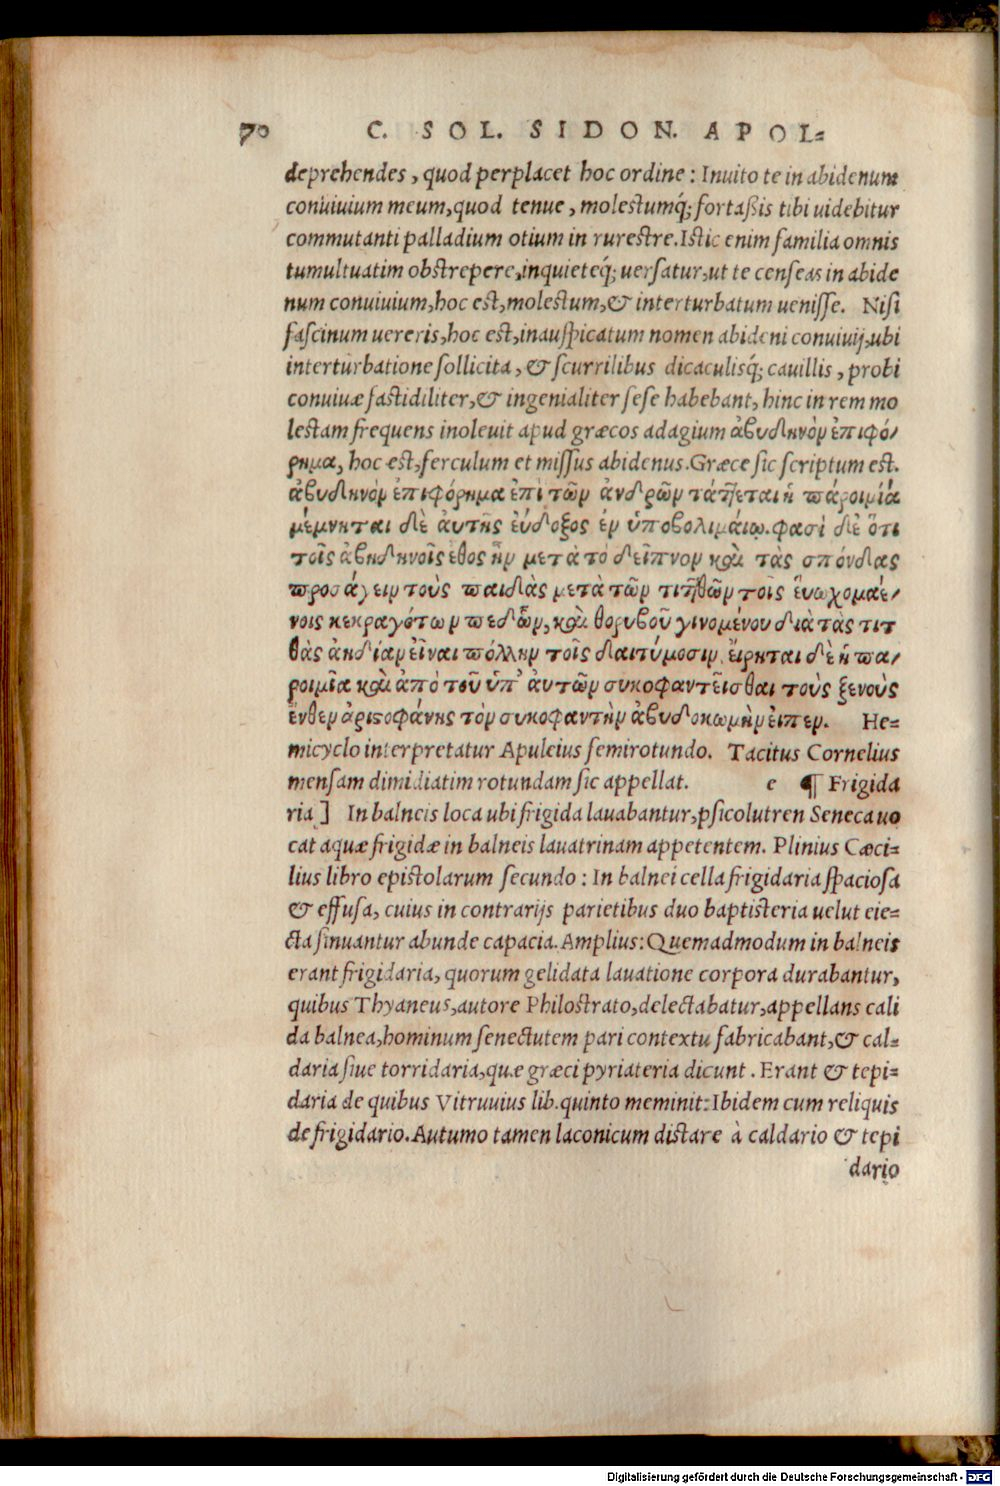 70 C. SOL. SIDON. APOL-
deprehendes, quod perplacet hoc ordine : Inuito te in abidenum
conuiuium meum, quod tenue, molestumq́; fortaßis tibi uidebitur
commutanti palladium otium in rurestre. Istic enim familia omnis
tumultuatim obstrepere, inquieteq́; uersatur, ut te censeas in abide
num conuiuium, hoc est, molestum, & interturbatum uenisse. Nisi
fascinum uereris, hoc est, inauspicatum nomen abideni conuiuij, ubi
interturbatione sollicita, & scurrilibus dicaculisq́; cauillis, probi
conuiuæ fastidiliter, & ingenialiter sese habebant, hinc in rem mo
lestam frequens inoleuit apud græcos adagium ἀβυδηνὸν ἐπιφό/
ρημα, hoc est, ferculum et missus abidenus. Græce sic scriptum est.
ἀβυδηνὸν ἐπιφόρημα ἐπὶ τῶν ἀνδρῶν τάττεται ἡ παροιμία
μέμνηται δὲ ἀυτῆς ἐύδοξος ἐν ὑποβολιμάιῳ. φασὶ δὲ ὅτι
τοῖς ἀβηδηνοῖς ἐθος ἦν μετὰ τὸ δεῖπνον καὶ τὰς σπόνδιας
προσάγειν τοὺς παιδιὰς μετὰ τῶν τιτθῶν τοῖς ἐυωχομαέ/
νοις κεκραγότων πεδῶν, καὶ θορυβοῦ γινομένου διὰ τὰς τιτ
θὰς ἀηδίαν εἶναι πόλλην τοῖς δαιτύμοσιν. ἔιρηται δὲ ἡ πα/
ροιμῖα καὶ ἀπὸ τοῦ ὑπ' ἀυτῶν συκοφαντεῖσθαι τοὺς ξενοὺς
ἔνθεν ἀριστοφάνης τὸν συκοφαντὴν ἀβυδοκωμὴν ἐιπεν. He-
micyclo interpretatur Apuleius semirotundo. Tacitus Cornelius
mensam dimidiatim rotundam sic appellat. e ¶ Frigida
ria ] In balneis loca ubi frigida lauabantur, psicolutren Seneca uo
cat aquæ frigidæ in balneis lauatrinam appetentem. Plinius Cæci-
lius libro epistolarum secundo : In balnei cella frigidaria spaciosa
& effusa, cuius in contrarijs parietibus duo baptisteria uelut eie-
cta sinuantur abunde capacia. Amplius: Quemadmodum in balneis
erant frigidaria, quorum gelidata lauatione corpora durabantur,
quibus Thyaneus, autore Philostrato, delectabatur, appellans cali
da balnea, hominum senectutem pari contextu fabricabant, & cal-
daria siue torridaria, quæ græci pyriateria dicunt. Erant & tepi-
daria de quibus Vitruuius lib. quinto meminit: Ibidem cum reliquis
de frigidario. Autumo tamen laconicum distare à caldario & tepi
dario
Digitalisierung gefördert durch die Deutsche Forschungsgemeinschaft - DFG